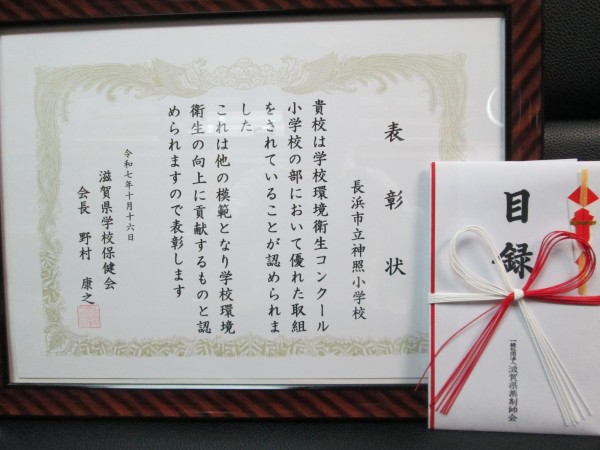 表彰状
長浜市立神照小学校
貴校は学校環境衛生コンクール
小学校の部において優れた取組
をされていることが認められま
した
これは他の模範となり学校環境
衛生の向上に貢献するものと認
められますので表彰します
令和七年十月十六日
滋賀県学校保健会
会長 野村 康之
目録
一般社団法人 滋賀県薬剤師会